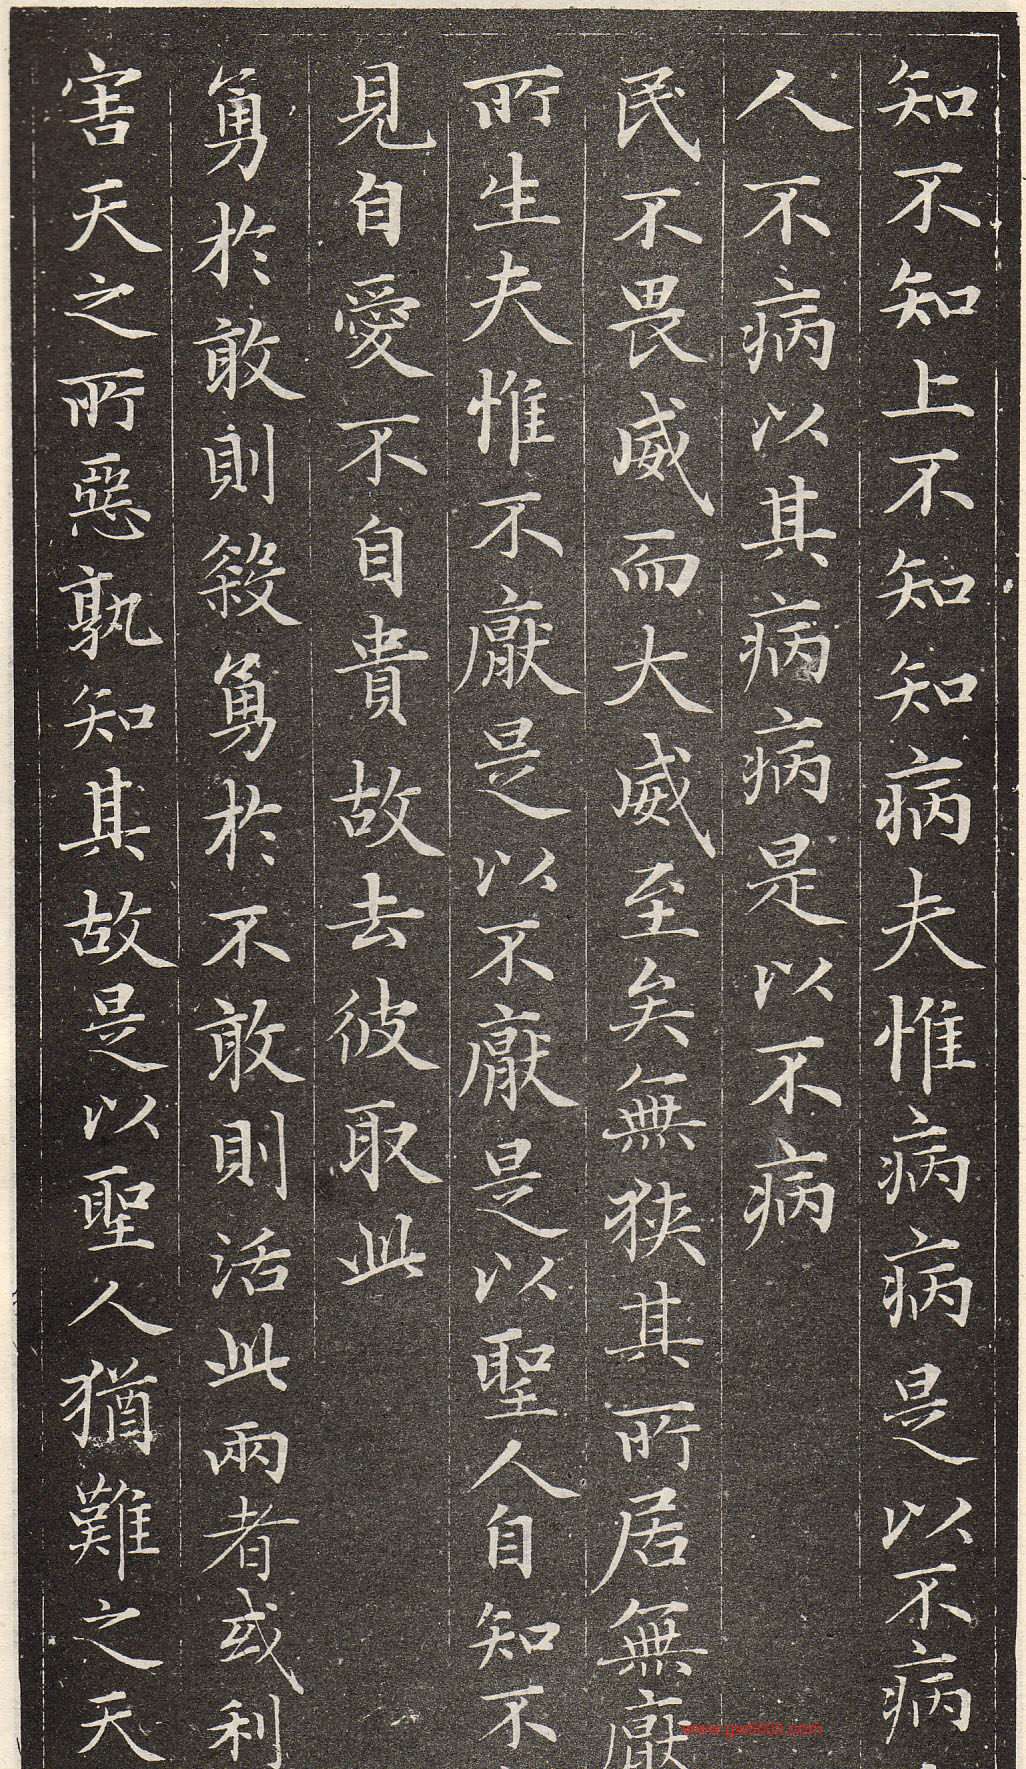 知不知上不知知病夫惟病病是以不病
人不病以其病病病是以不病
民不畏威而大威至矣無狹其所居無厭
所生夫惟不厭是以不厭是以聖人自知不
見自愛不自貴故去彼取此
勇於敢則殺勇於不敢則活此兩者或利
害天之所惡孰知其故是以聖人猶難之天
www.gwt5000.com